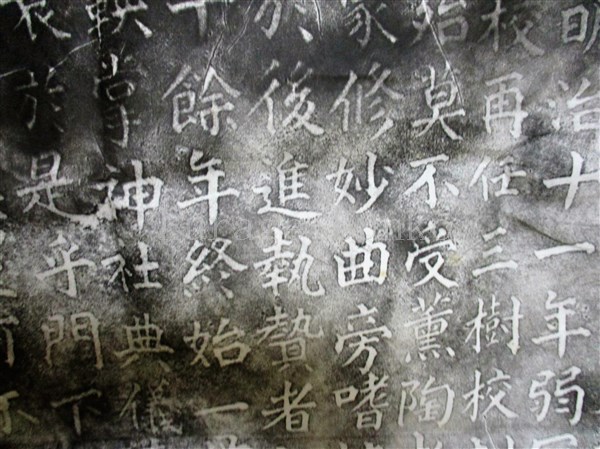 明治十一年弱
校再任三樹校
始莫不受薰陶
家修妙曲旁嗜
於後進執贄者
十餘年終始一
鞅掌神社典儀
於是乎門下